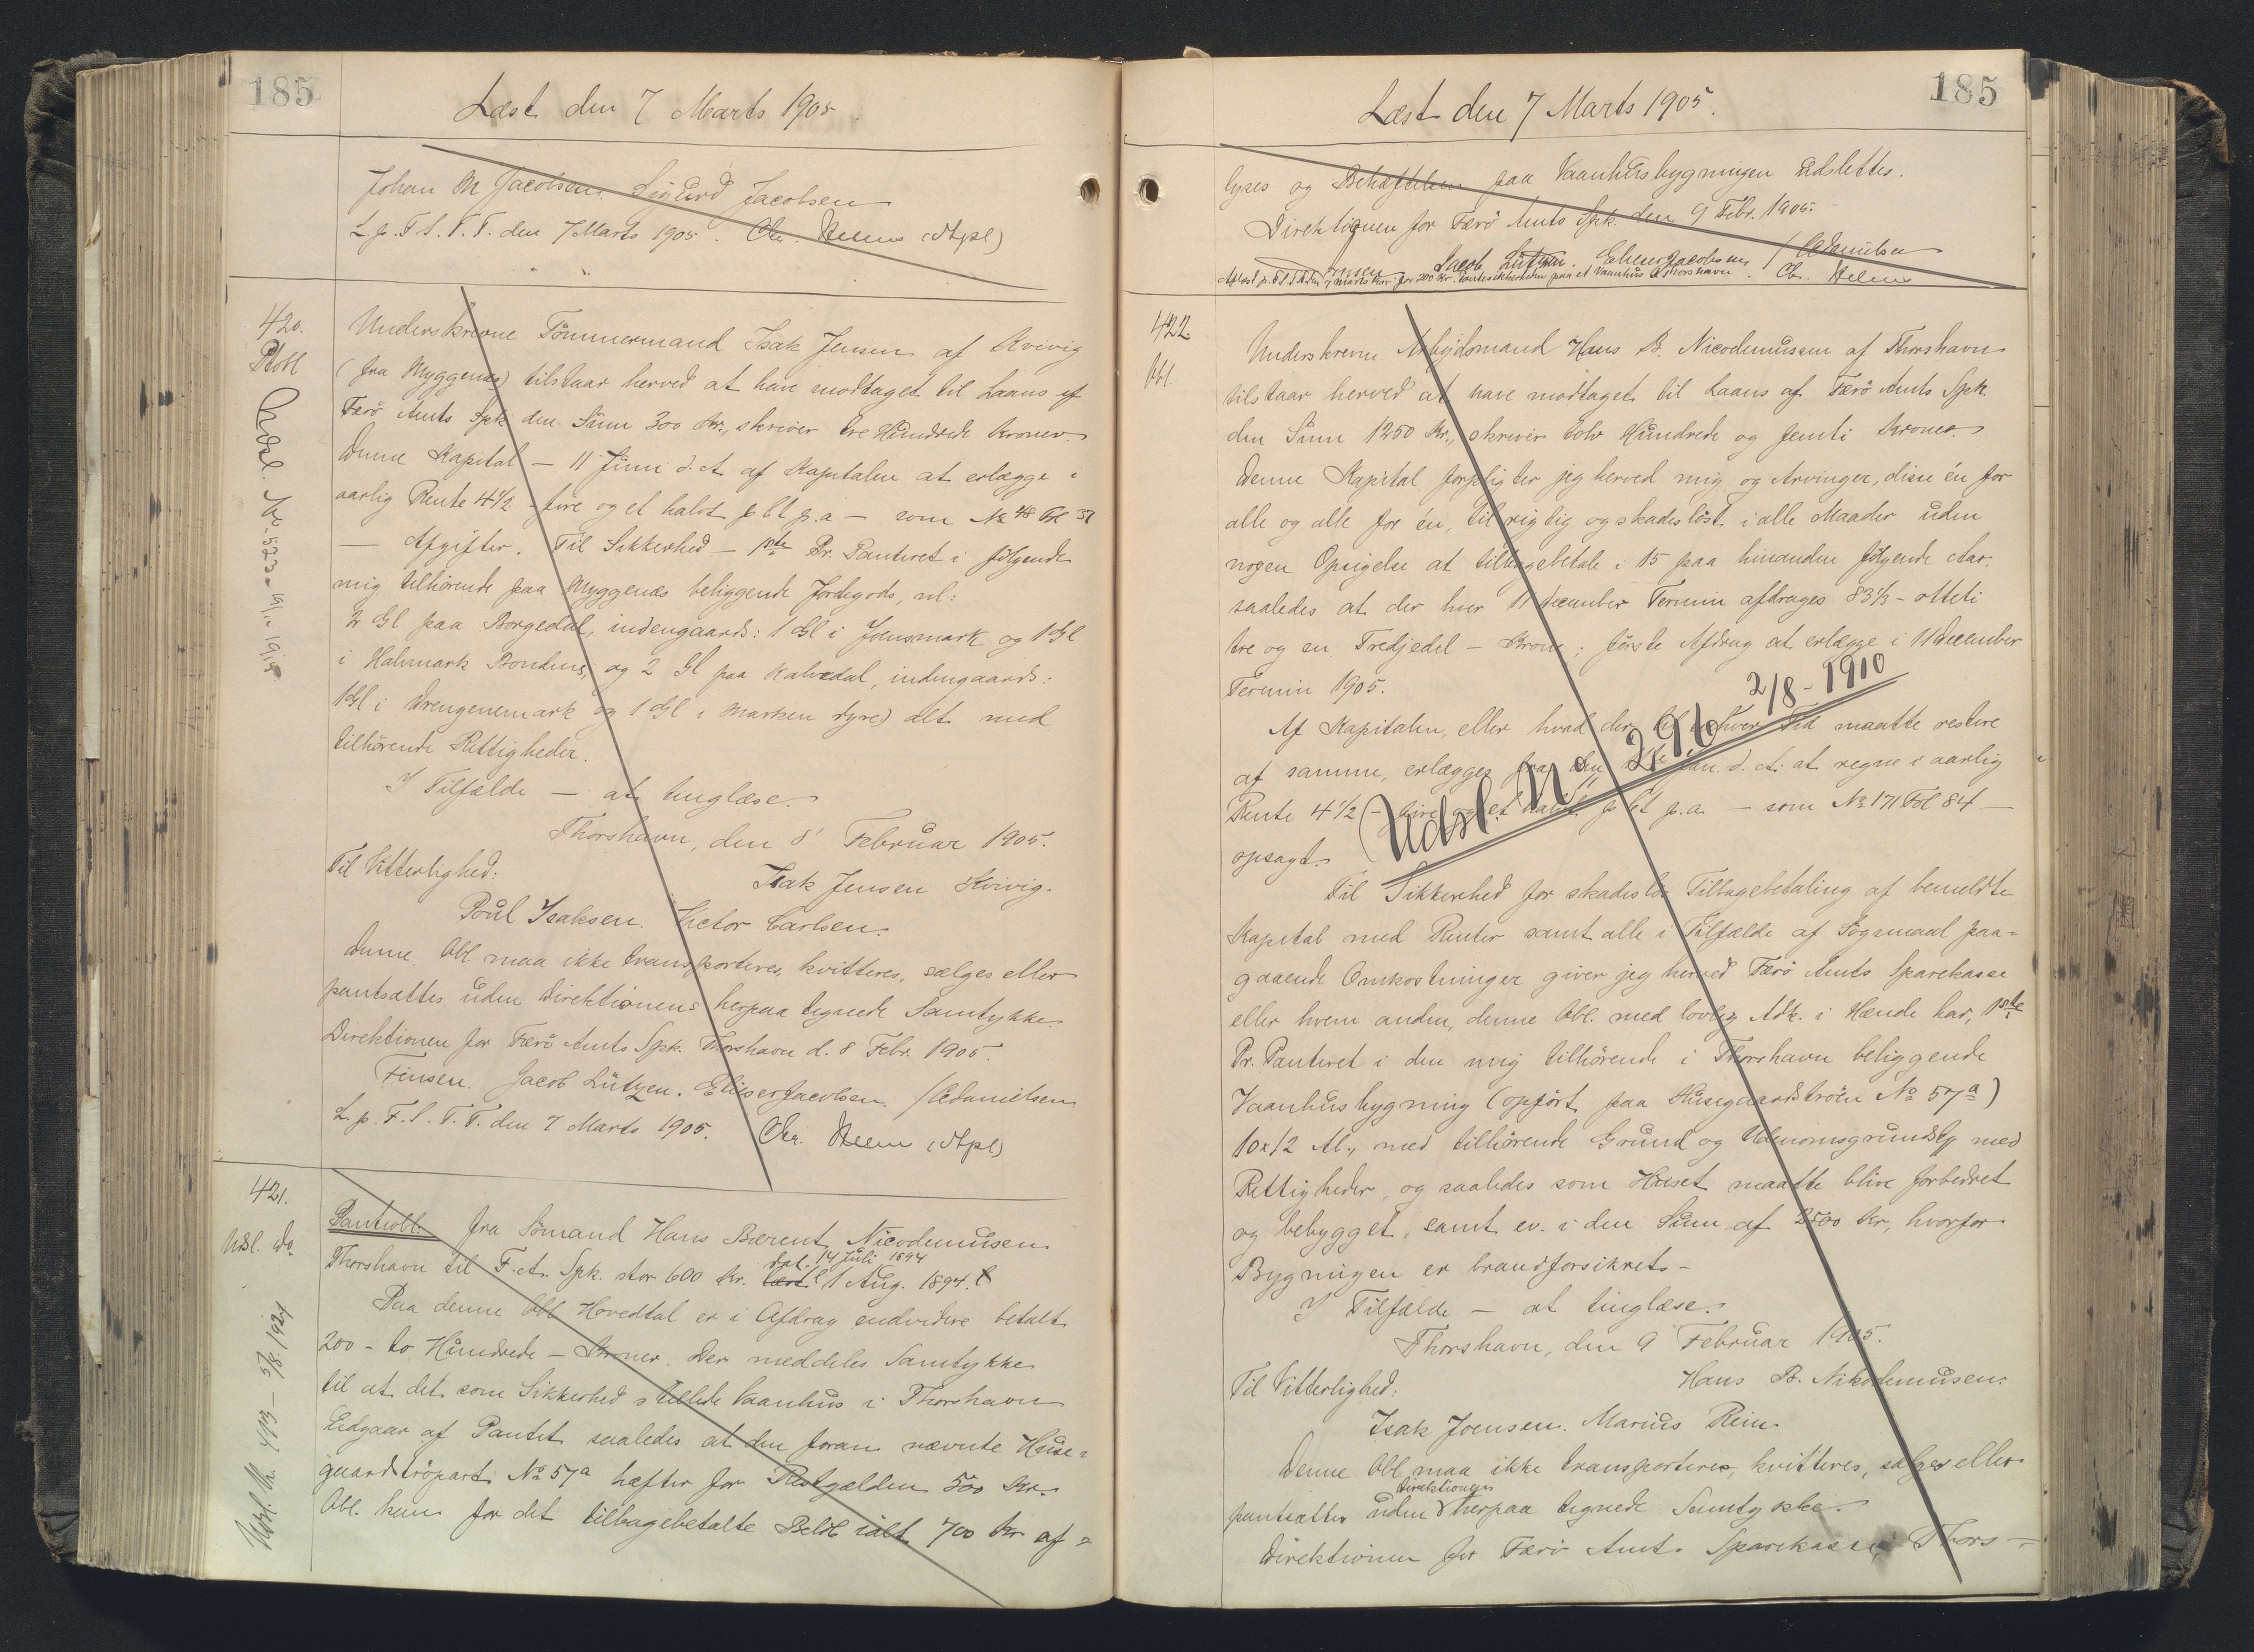 185
Læst den 7 Marts 1905
Johan M Jacobsen. Sigurd Jacobsen
L. p. F. S. T. T. den 7 Marts 1905. Chr. Heems (Apl)
420.
Ptobl
Udsl. No. 523 - 19/12 1919
Underskrevne Tömmermand Isak Jensen af Kvivig
(fra Myggenæs) tilstaar herved at have modtaget til Laans af
Færö Amts Spk den Sum 300 Kr., skriver tre Hundrede Kroner.
Denne Kapital — 11 Juni d. A. af Kapitalen at erlægge i
aarlig Rente 4½ - fire og et halvt p Ct p. a — som No 48 Fol 37
— Afgifter. Til Sikkerhed — 1ste Pr. Panteret i følgende
mig tilhörende paa Myggenæs beliggende Jordegods, nl:
2 Gl paa Borgedal, indengaards: 1 Gl i Joensmark og 1 Gl
i Halvmark Bondens, og 2 Gl paa Kalvedal, indengaards:
1 Gl i Drengenemark og 1 Gl i Marken dyre) alt med
tilhörende Rettigheder.
I Tilfælde — at tinglæse.
Thorshavn, den 8' Februar 1905.
Til Vitterlighed: Isak Jensen Kvivig.
Poul Isaksen. Victor Carlsen.
Denne Obl. maa ikke transporteres, kvitteres, sælges eller
pantsættes uden Direktionens herpaa tegnede Samtykke
Direktionen for Færö Amts Spk. Thorshavn d. 8 Febr. 1905.
Finsen. Jacob Lützen. Elieser Jacobsen. / C Danielsen
L. p. F. S. T. T. den 7 Marts 1905. Chr. Heems (Apl)
421.
Udsl. do
Udsl. No. 493 - 5/8. 1921
Pantobl. fra Sömand Hans Berent Nicodemussen
dat. 14 Juli 1894
Thorshavn til F. A. Spk. stor 600 Kr. læst 1 Aug. 1894.
Paa denne Obl. Hovedtal er i Afdrag endvidere betalt
200 - to Hundrede - Kroner. Der meddeles Samtykke
til at det som Sikkerhed stillede Vaanhus i Thorshavn
Udgaar af Pantet saaledes at den foran nævnte Huse=
gaardströpart No 57a hæfter for Restgælden 500 Kr.
Obl. kun for det tilbagebetalte Belöb ialt 700 Kr af=
185
Læst den 7 Marts 1905.
lyses og Behæftelsen paa Vaanhusbygningen udslettes.
Direktionen for Færö Amts Spk. den 9 Febr. 1905.
Finsen Jacob Lützen. Elieser Jacobsen / C Danielsen
Aflæst p. F. S. T. T. den 7 Marts 1905 for 200 Kr. Pantesikkerheden paa et Vaanhus i Thorshavn. Chr. Heems
422.
Obl.
Underskrevne Arbejdsmand Hans B. Nicodemussen af Thorshavn
tilstaar herved at have modtaget til Laans af Færö Amts Spk.
den Sum 1250 Kr., skriver tolv Hundrede og femti Kroner.
Denne Kapital forpligter jeg herved mig og Arvinger, disse én for
alle og alle for én, til rigtig og skadeslöst i alle Maader uden
nogen Opsigelse at tilbagebetale i 15 paa hinanden fölgende Aar,
saaledes at der hver 11 December Termin afdrages 83⅓ - otteti
tre og en Tredjedel - Krone; förste Afdrag at erlægge i 11 December
Termin 1905.
Af Kapitalen, eller hvad der til enhver Tid maatte restere
af samme, erlægges fra den Jan. d. A. at regne i aarlig
Rente 4½ (- fire og et halvt p Ct p. a. — som No 171 Fol 84 —
opsagt.
Udsl. No 296 2/8 - 1910
Til Sikkerhed for skadeslös Tilbagebetaling af bemeldte
Kapital med Renter samt alle i Tilfælde af Sögsmaal paa=
gaaende Omkostninger giver jeg herved Færö Amts Sparekasse
eller hvem anden, denne Obl. med lovlig Adk. i Hænde har, 1ste
Pr. Panteret i den mig tilhörende i Thorshavn beliggende
Vaanhusbygning (opfört paa Husegaardströen No 57a)
10 x 12 Al., med tilhörende Grund og Udenomsgrundstk med
Rettigheder, og saaledes som Huset maatte blive forbedret
og bebygget, samt ev. i den Sum af 2500 Kr, hvorfor
Bygningen er brandforsikret. -
I Tilfælde — at tinglæse.
Thorshavn, den 9 Februar 1905.
Til Vitterlighed: Hans B. Nikodemusen.
Isak Joensen. Marius Rein.
Denne Obl. maa ikke transporteres, kvitteres, sælges eller
Direktionens
pantsættes uden herpaa tegnede Samtykke.
Direktionen for Færö Amts Sparekasse, Thors -